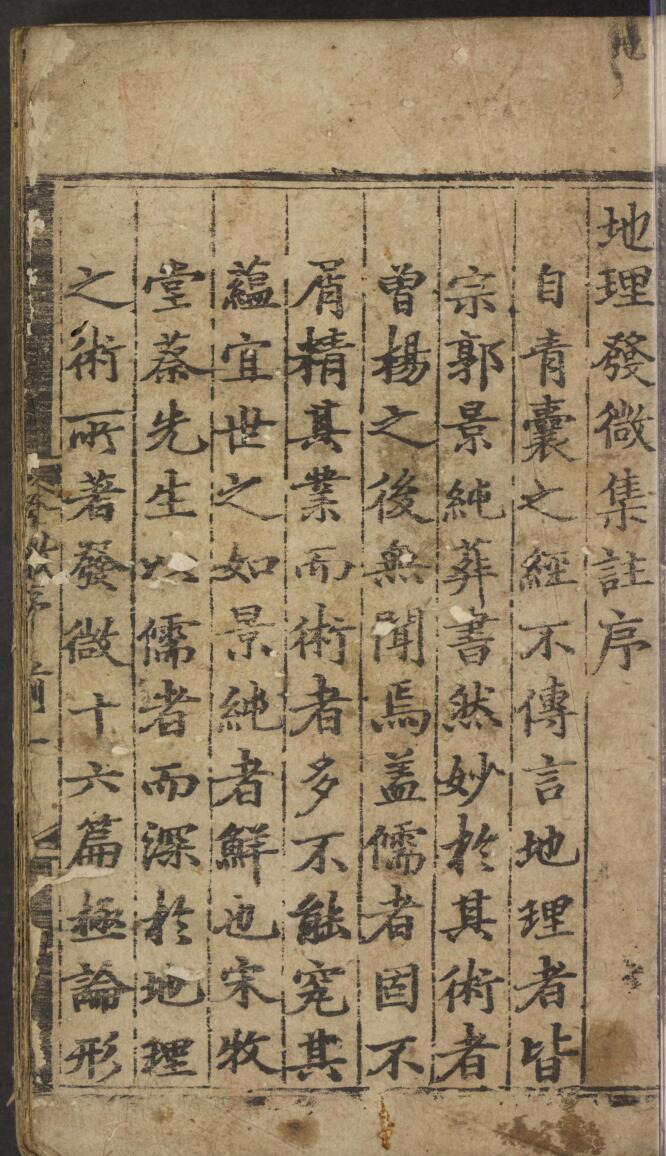 地理發微集註序
自青囊之經不傳言地理者皆
宗郭景純葬書然妙於其術者
曾楊之後無聞焉蓋儒者固不
屑精其業而術者多不能究其
蘊宜世之如景純者鮮也宋牧
堂蔡先生以儒者而深於地理
之術所著發微十六篇極論形